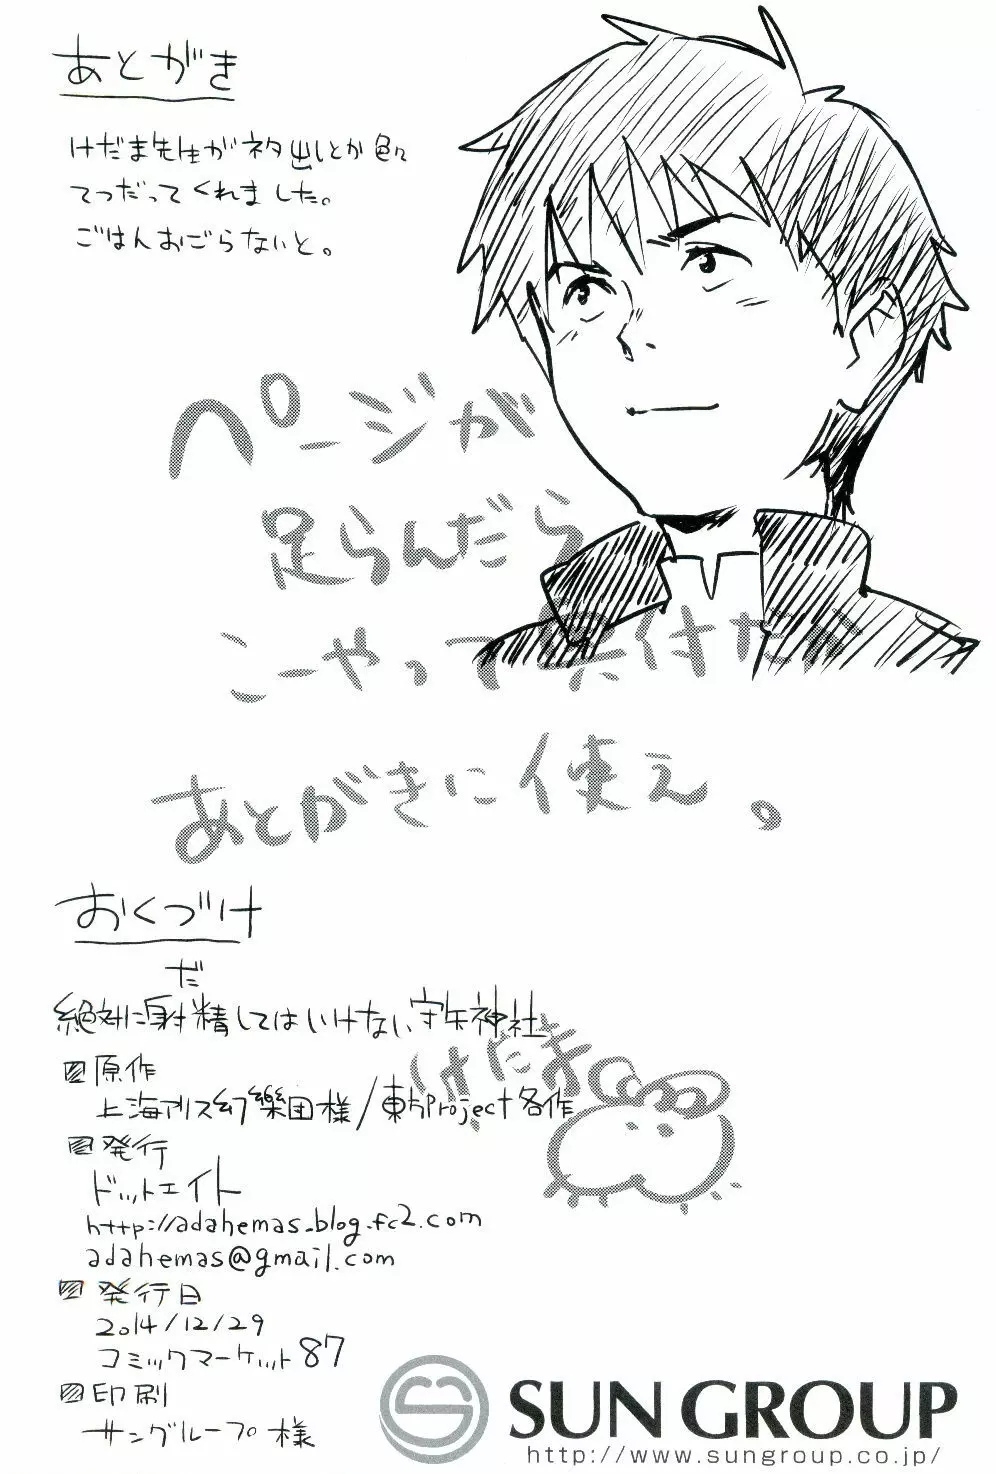 あとがき
けだま先生がネタ出しとか色々
てつだってくれました。
ごはんおごらないと。
ページが
足らんだら
こーやって 付だか
あとがきに使え。
おくづけ
だ
絶対に射精してはいけない守矢神社
原作
上海アリス幻樂団様/東方Project各作
けだま
発行
ドットエイト
http://adahemas.blog.fc2.com
adahemas@gmail.com
発行日
2014/12/29
コミックマーケット87
印刷
サングループ様
SUN GROUP
http://www.sungroup.co.jp/